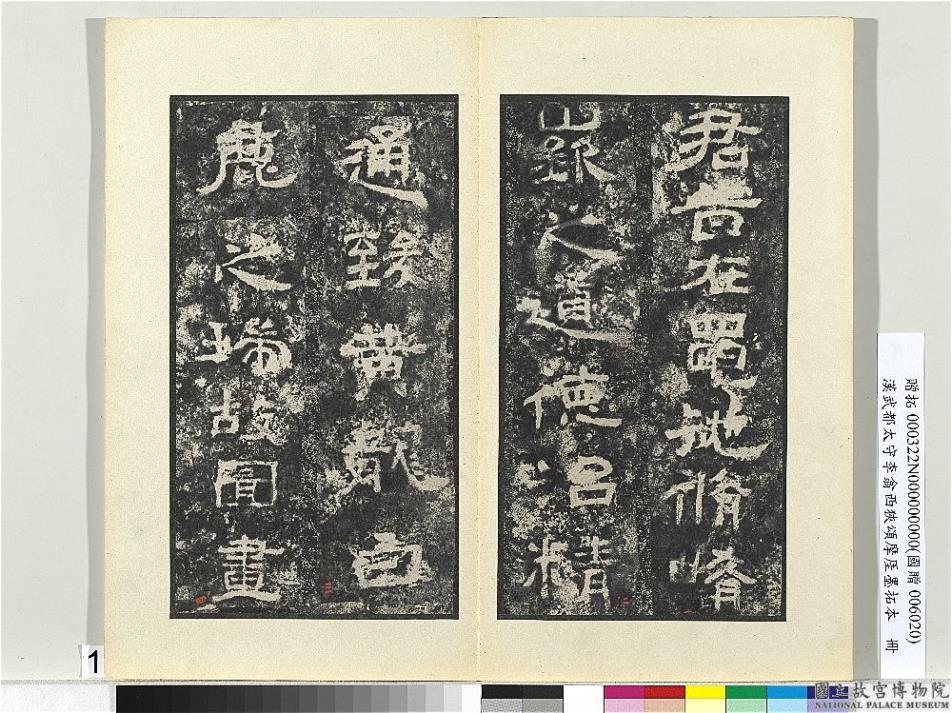 君昔在黽池脩崤
嶔之道德治精
通致黃龍白
鹿之瑞故圖畫
一
二
三
四
贈拓 000322N000000000(國贈 006020)
漢武都太守李翕西狹頌摩厓墨拓本 冊
1
國立故宮博物院
NATIONAL PALACE MUSEUM